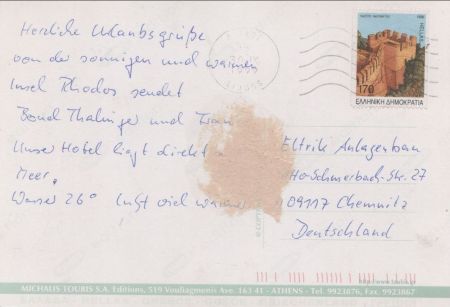 Herzliche Urlaubsgrüße
von der sonnigen und warmen
Insel Rhodos sendet
Bernd Thalinger und Frau
Unser Hotel liegt direkt a
Meer.
Wasser 26° Luft viel warme
ΕΛΛΗΝΙΚΗ ΔΗΜΟΚΡΑΤΙΑ
170
HELLAS
Eltrik Anlagenbau
Ho-Schmerbach-Str. 27
09117 Chemnitz
Deutschland
© COPY
MICHALIS TOUBIS S.A. Editions, 519 Vouliagmenis Ave. 163 41 - ATHENS - Tel. 9923876, Fax 9923867